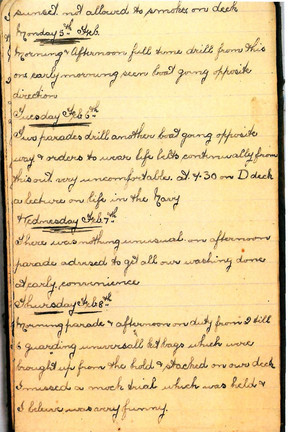 sunset not allowed to smoke on deck
Monday 5th Feb.
Morning & Afternoon full time drill from this
one early morning seen boat going opposite
direction
Tuesday Feb 6th
Two parades drill another boat going opposite
way & orders to wear life belts continually from
this out very uncomfortable. at 4.30 on D deck
a lecture on life in the Navy
Wednesday Feb. 7th
There was nothing unusual on afternoon
parade advised to get all our washing done
at early convenience
Thursday Feb. 8th
Morning parade & afternoon on duty from 2 till
6 guarding universal kit bags which were
brought up from the hold & stacked on our deck
I missed a mock trial which was held &
I believe was very funny.